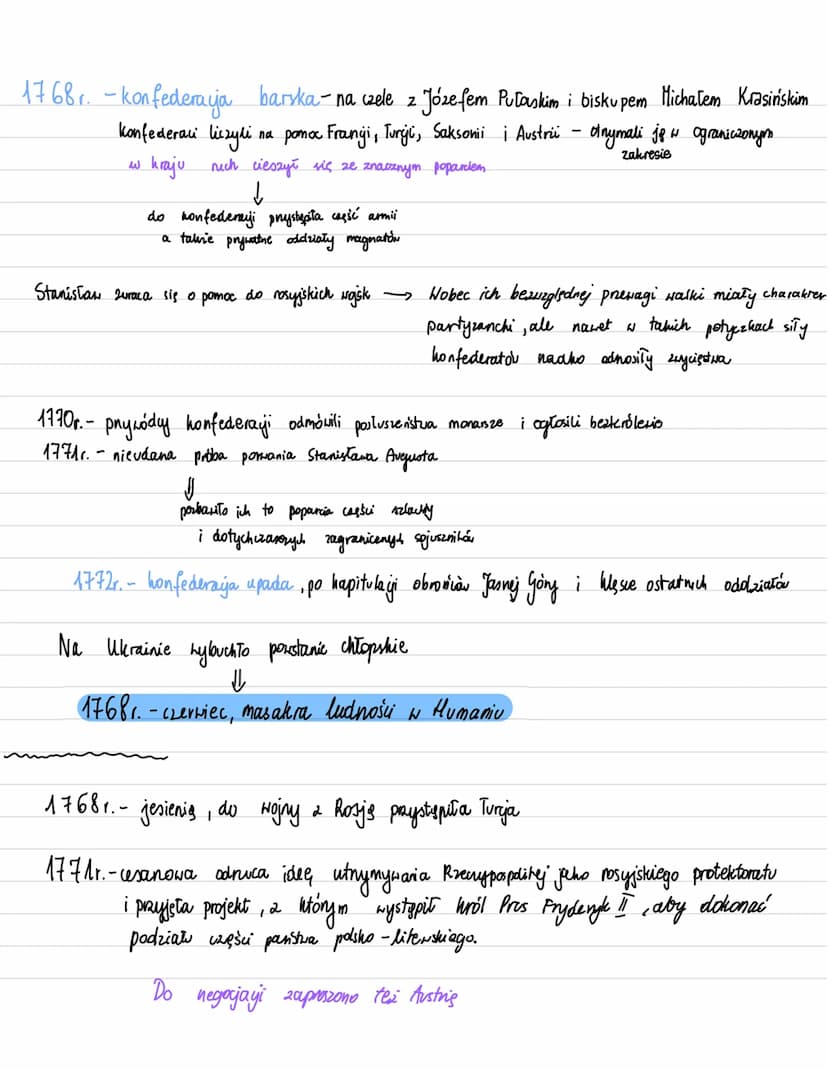 1768r. - konfederacja barska - na czele z Józefem Pułaskim i biskupem Michałem Krasińskim
konfederaci liczyli na pomoc Francji, Turcji, Saksonii i Austrii - otrzymali ją w ograniczonym
zakresie
w kraju ruch cieszył się ze znacznym poparciem
↓
do konfederacji przystąpiła część armii
a także prywatne oddziały magnatów
Stanisław zwraca się o pomoc do rosyjskich wojsk → Wobec ich bezwzględnej przewagi walki miały charakter
partyzancki, ale nawet w takich potyczkach siły
konfederatów rzadko odnosiły zwycięstwa
1770r. - przywódcy konfederacji odmówili posłuszeństwa monarsze i ogłosili bezkrólewie
1771r. - nieudana próba porwania Stanisława Augusta
⇓
pozbawiło ich to poparcia części szlachty
i dotychczasowych zagranicznych sojuszników
1772r. - konfederacja upada, po kapitulacji obrońców Jasnej Góry i klęsce ostatnich oddziałów
Na Ukrainie wybuchło powstanie chłopskie
⇓
1768r. - czerwiec, masakra ludności w Humaniu
1768r. - jesienią, do wojny z Rosją przystąpiła Turcja
1771r. - cesarzowa odrzuca ideę utrzymywania Rzeczypospolitej jako rosyjskiego protektoratu
i przyjęła projekt, z którym wystąpił król Prus Fryderyk II, aby dokonać
podziału części państwa polsko-litewskiego.
Do negocjacji zaproszono też Austrię